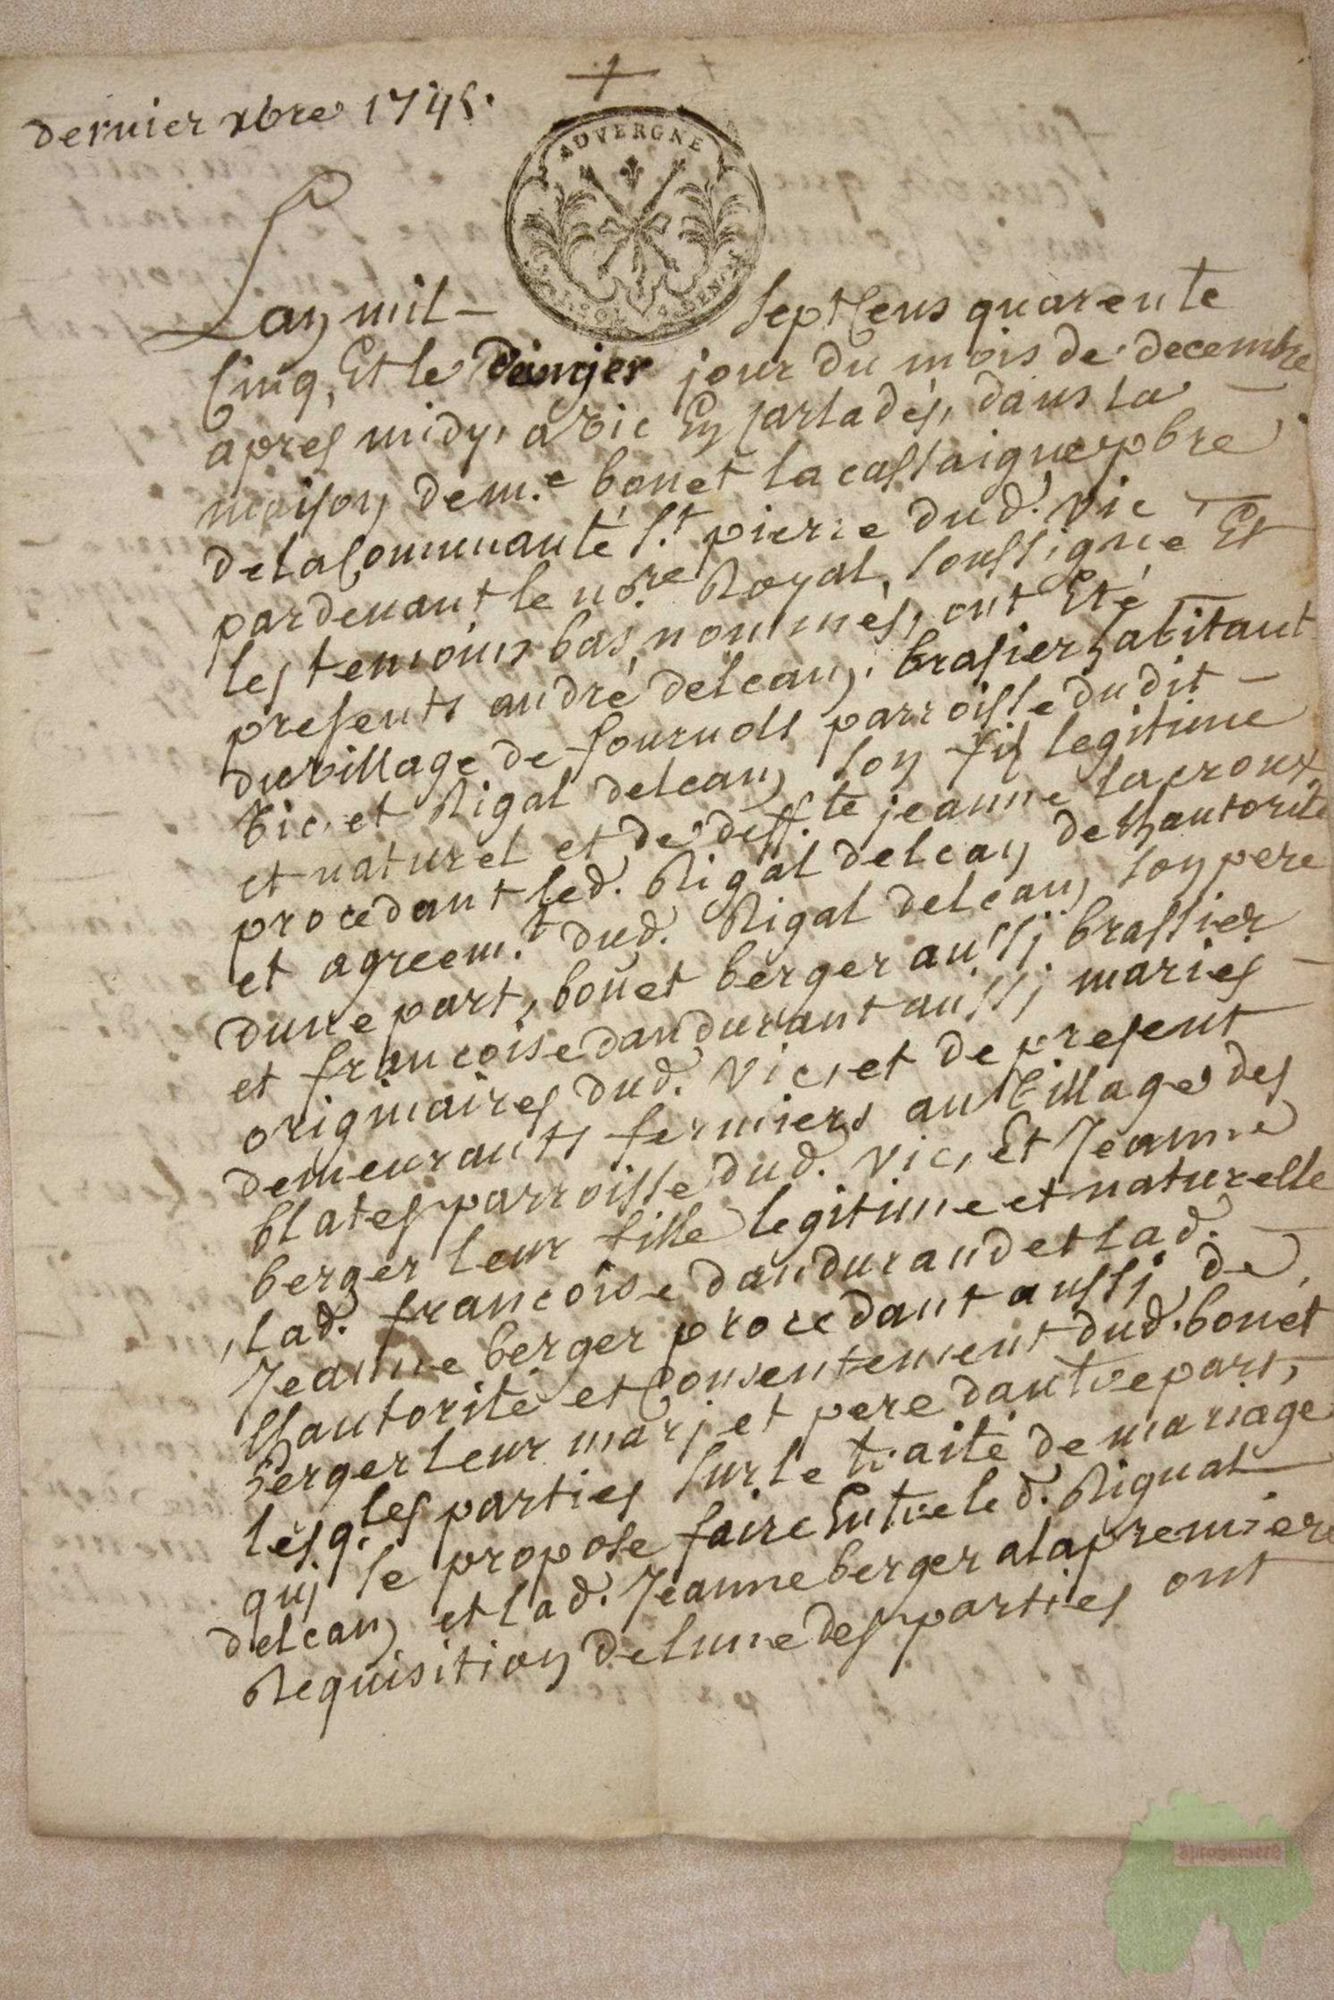 dernier xbre 1745.
AUVERGNE
Lan mil - sept cens quarente
cinq, Et le dernier jour du mois de decembre
apres midy, a vic En Carladés, dans la
maison de m.e bouet la cassaigne pbre
de la Communauté S.t pierre dud. vic
pardevant le no.re Royal soussigné Et
les temoins bas nommés, ont Eté
presents andré delcan, brasier habitant
du village de fournols parroisse dudit
vic, et Rigal delcan son fils legitime
et naturel et de deff.te jeanne lacroux
procedant led. Rigal delcan de lhautorité
et agreem.t dud. Rigal delcan son pere
dune part, bouet berger aussj brassier
et francoise dandurant aussj mariés
originaires dud. vic, et de present
demeurants fermiers au village des
blates parroisse dud. vic, Et Jeanne
berger leur fille legitime et naturelle
lad. francoise dandurand et lad.
Jeanne berger procedant aussj de
lhautorité et Consentement dud. bouet
berger leur marj et pere dautre part,
lesq.les parties sur le traité de mariage
quj se propose faire Entre led. Rigual
delcan et lad. Jeanne berger a la premiere
Requisition de lune des parties ont